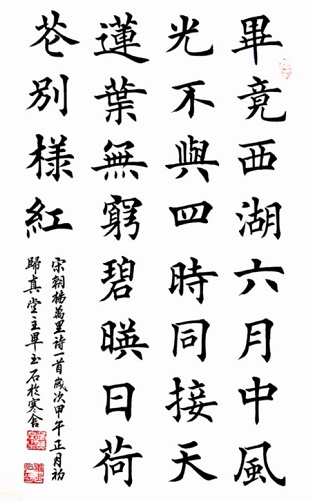 畢竟西湖六月中風
光不與四時同接天
蓮葉無窮碧暎日荷
花別樣紅
宋朝楊萬里詩一首歲次甲午正月初
歸真堂主畢玉石於寒舍